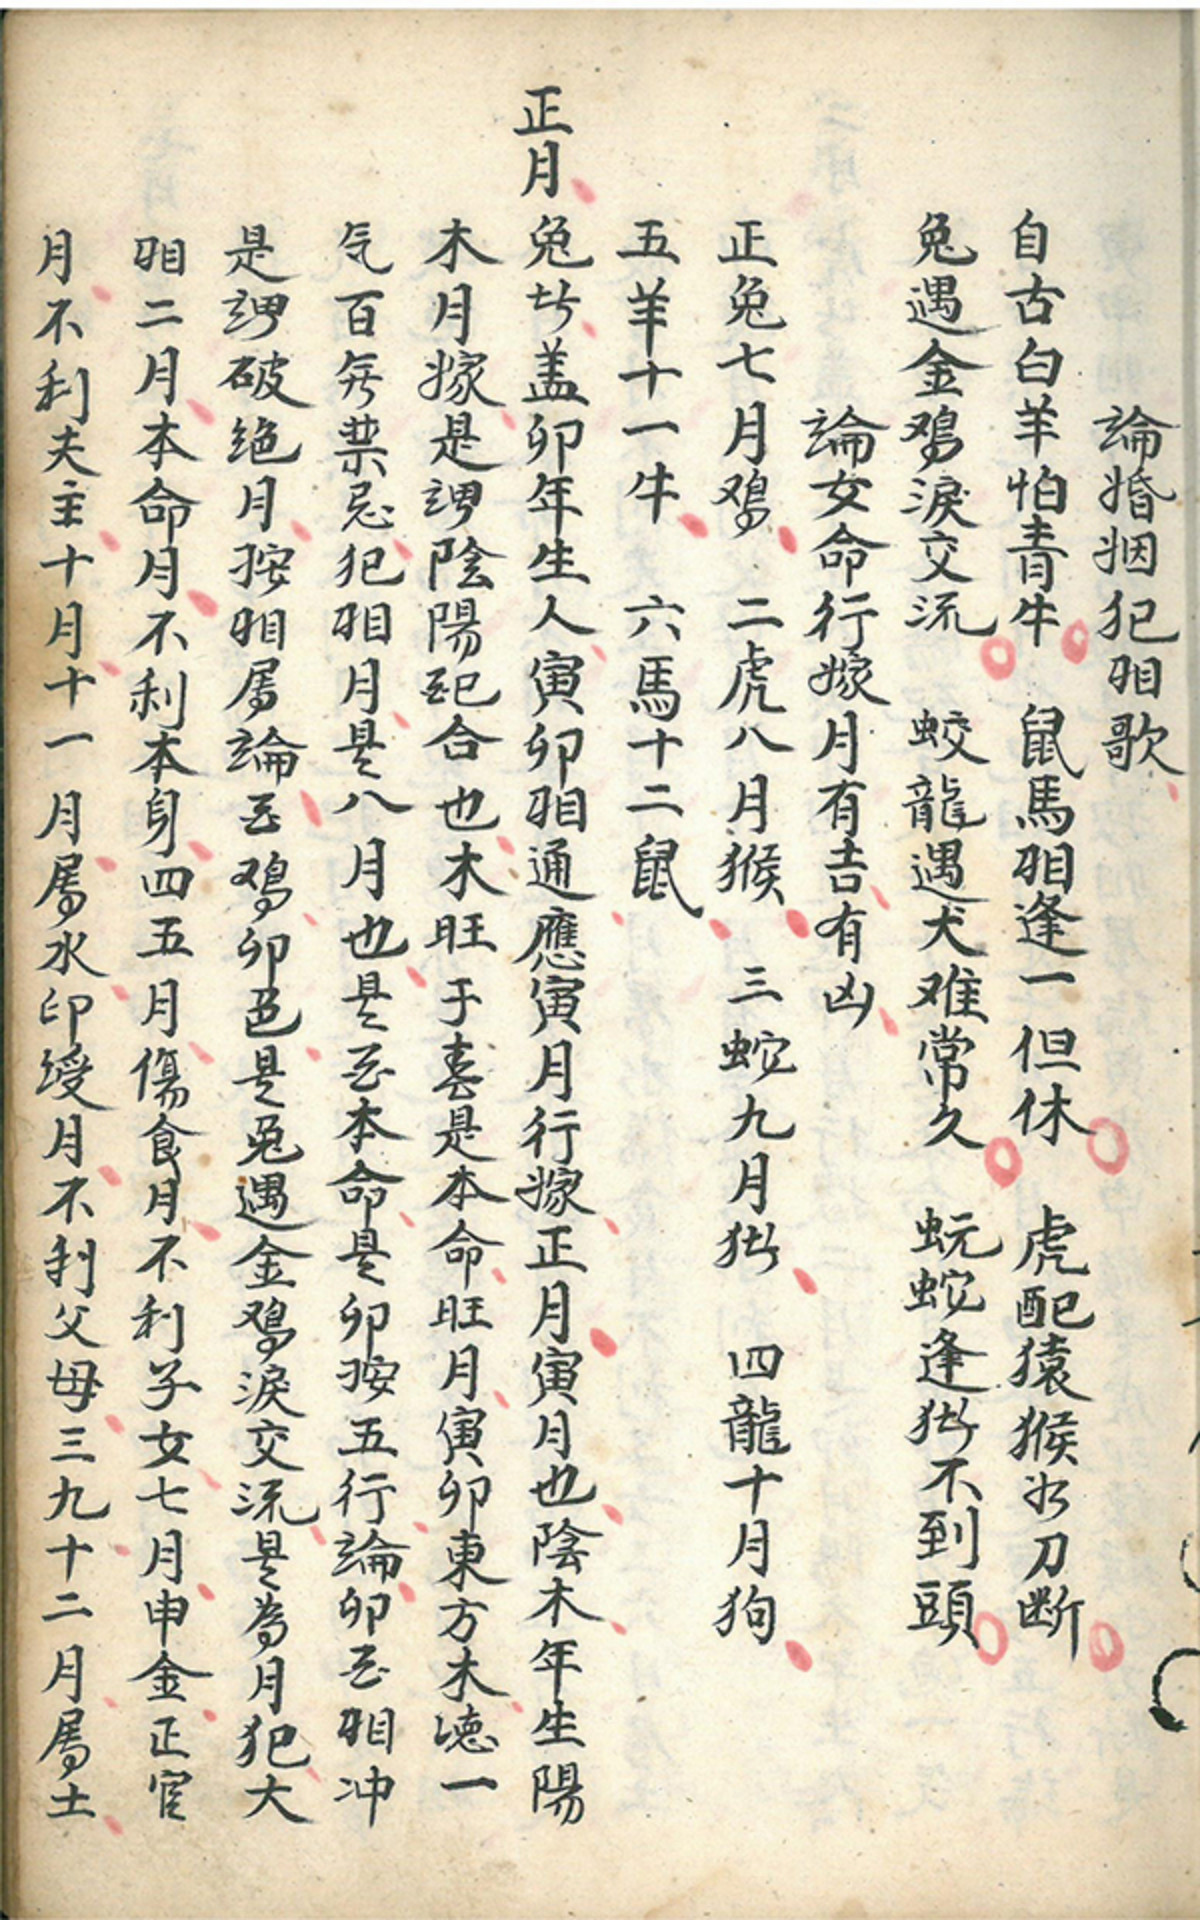 論婚姻犯相歌
自古白羊怕青牛 鼠馬相逢一但休 虎配猿猴如刀断
兔遇金鷄淚交流 蛟龍遇犬难常久 蚖蛇逢猪不到頭
論女命行嫁月有吉有凶
正兔七月鷄 二虎八月猴 三蛇九月猪 四龍十月狗
五羊十一牛 六馬十二鼠
正月兔者盖卯年生人寅卯相通應寅月行嫁正月寅月也陰木年生陽
木月嫁是謂陰陽配合也木旺于春是本命旺月寅卯東方木德一
气百無禁忌犯相月是八月也是酉本命是卯按五行論卯酉相冲
是謂破绝月按相属論酉鷄卯兔是兔遇金鷄淚交流是為月犯大
相二月本命月不利本身四五月傷食月不利子女七月申金正官
月不利夫主十月十一月属水印绶月不利父母三九十二月属土